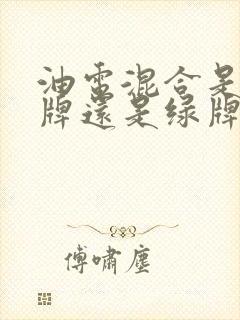 油電混合是
牌還是綠牌
傅嘯塵